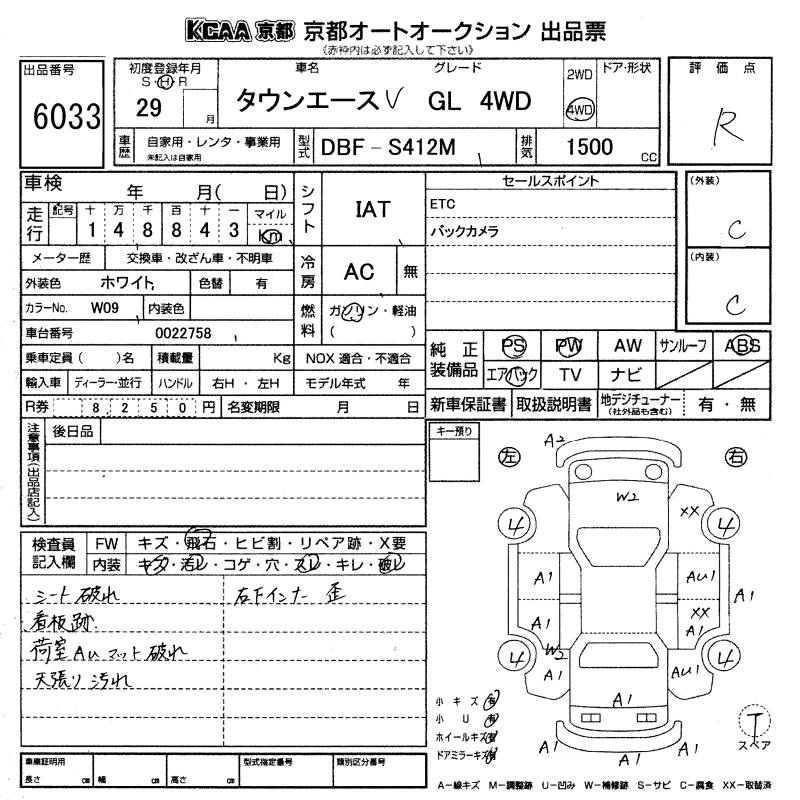 KCAA 京都 京都オートオークション 出品票
《赤枠内は必ず記入して下さい》
出品番号
6033
初度登録年月
S・H・R
29
月
車名
グレード
タウンエースV GL 4WD
2WD
4WD
ドア・形状
評価点
R
車歴
自家用・レンタ・事業用
未記入は自家用
型式
DBF-S412M
排気
1500
cc
車検
年 月( 日)
走行
記号 十 万 千 百 十 一
1 4 8 8 4 3
マイル
Km
シフト
IAT
メーター歴
交換車・改ざん車・不明車
冷房
AC
無
外装色
ホワイト
色替
有
カラーNo.
W09
内装色
燃料
ガソリン・軽油
( )
車台番号
0022758
乗車定員( )名
積載量
Kg
NOX 適合・不適合
輸入車
ディーラー・並行
ハンドル
右H・左H
モデル年式 年
R券
8,250円
名変期限
月 日
セールスポイント
ETC
バックカメラ
(外装)
C
(内装)
C
純正装備品
PS PW AW サンルーフ ABS
エアバック TV ナビ
新車保証書
取扱説明書
地デジチューナー
(社外品も含む)
有・無
注意事項(出品店記入)
後日品
キー預り
検査員記入欄
FW
キズ・飛石・ヒビ割・リペア跡・X要
内装
キズ・汚レ・コゲ・穴・スレ・キレ・破レ
シート破れ
看板跡
荷室AUマット破れ
天張り汚れ
右下インナー 歪
左
右
A2
W2
XX
4
4
A1
AU1
A1
XX
A1
A1
W2
4
4
A1
AU1
A1
A1
A1
小キズ 有
小U 有
ホイールキズ 有
ドアミラーキズ 有
T
スペア
車庫証明用
長さ cm
幅 cm
高さ cm
型式指定番号
類別区分番号
A-線キズ M-調整跡 U-凹み W-補修跡 S-サビ C-腐食 XX-取替済